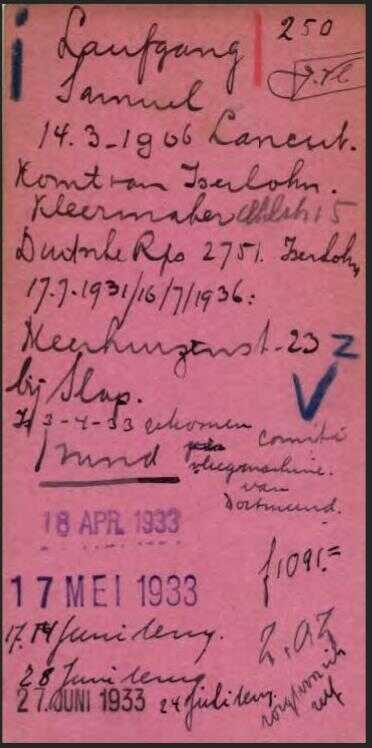 250
Laufgang
Samuel
14.3-1906 Lancut.
Komt van Iserlohn.
Kleermaker
Duitsche Rps 2751. Iserlohn
17.7-1931/16/7/1936:
23 Z
bij Slap. V
Is 3-4-33 gekomen
comité
vliegmachine.
van
Dortmund.
18 APR. 1933
f 1091.=
17 MEI 1933
17. 14 Juni terug.
28 Juni terug
27. JUNI 1933 24 Juli terug.